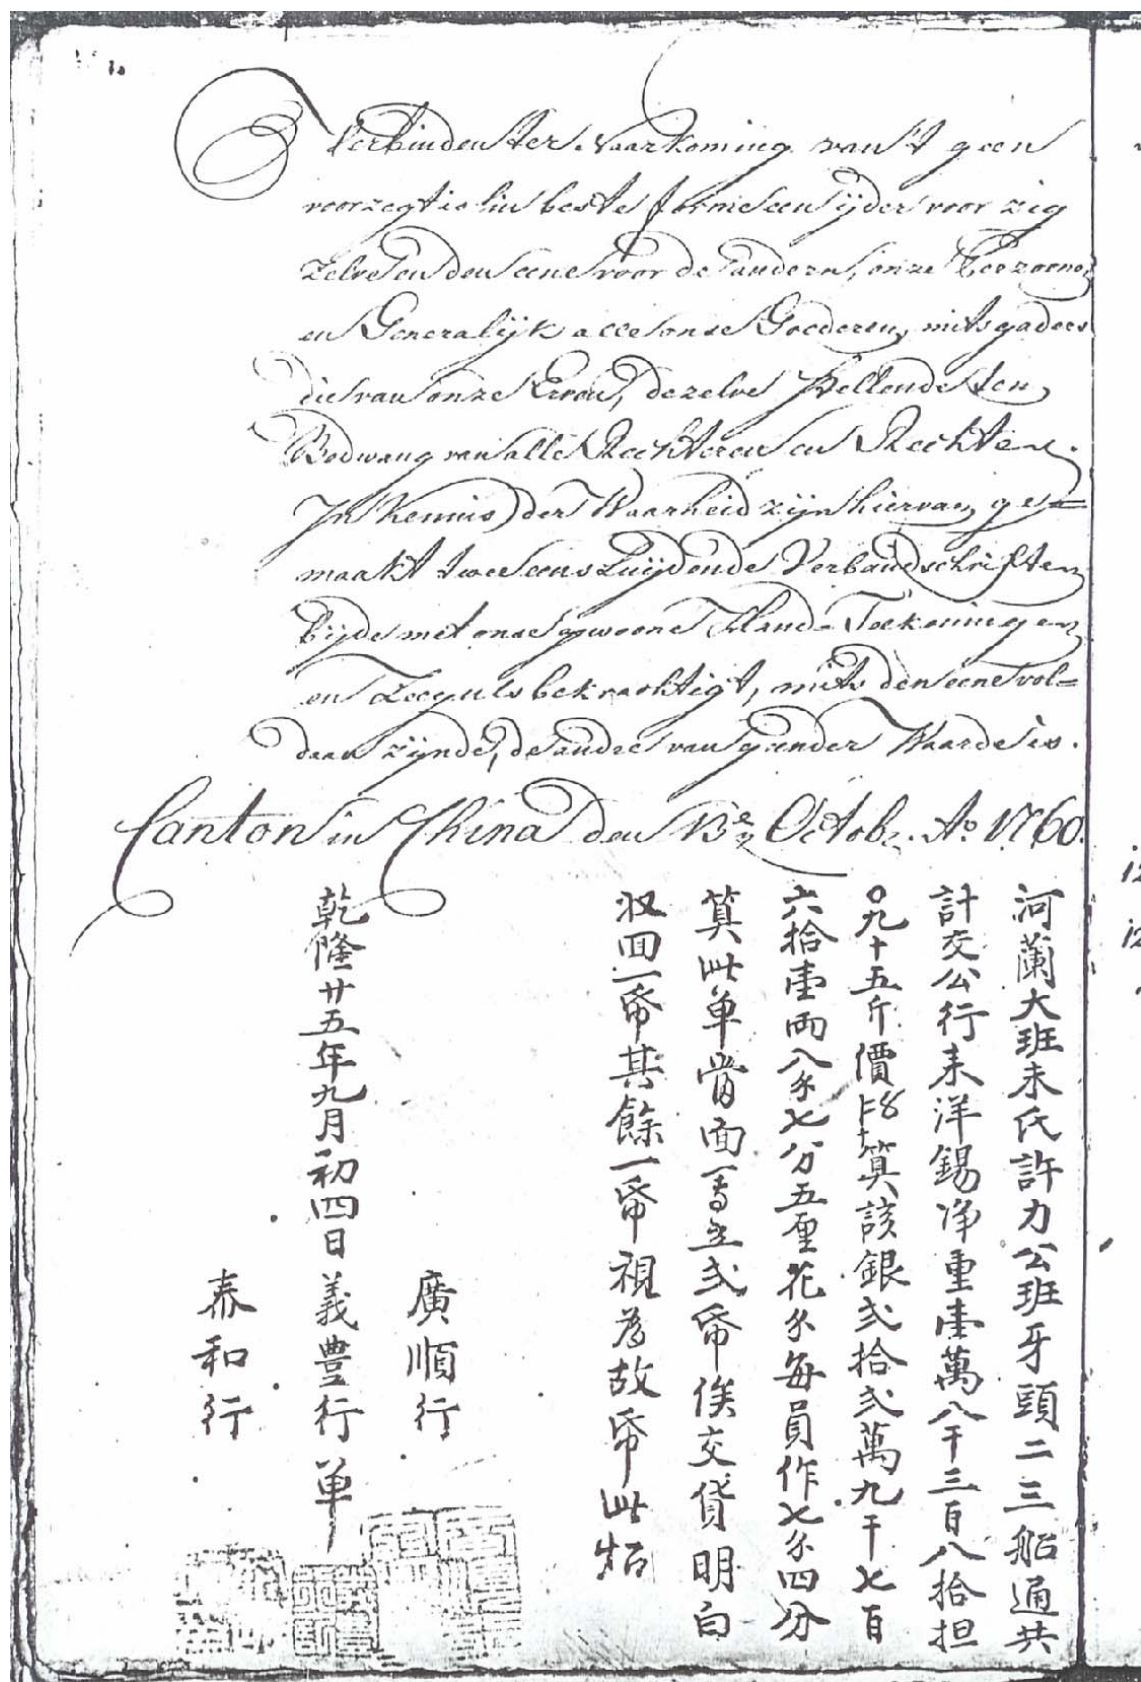 Verbinden ter Naarkoming van 't geen
voorzegt is in beste forme een ijder voor zig
zelve en den eene voor de andern, onze Perzoone
en Generalijk alle onse Goederen, mitsgaders
die van onze Erven, dezelve stellende ten
Bedwang van alle Rechteren en Rechten.
In Kennis der Waarheid zijn hiervan ge=
maakt twee eens Luijdende Verbandschriften
bijde met onse gewoone Hand-Teekeningen
en Zeeguls bekrachtigt, mits den eene vol=
daan zijnde, de andre van geender Waarde is.
Canton in China den 13en Octobr. Ao. 1760.
河蘭大班耒氏許力公班牙頭二三船通共
計交公行耒洋錫净重壹萬八千三百八拾担
〇九十五斤價算該銀弍拾弍萬九千七百
六拾壹兩八釆七分五厘花釆每員作七釆四分
算此单當面寫立弍帋俟交貨明白
收回一帋其餘一帋視為故帋此炤
廣順行
乾隆廿五年九月初四日義豊行单
泰和行